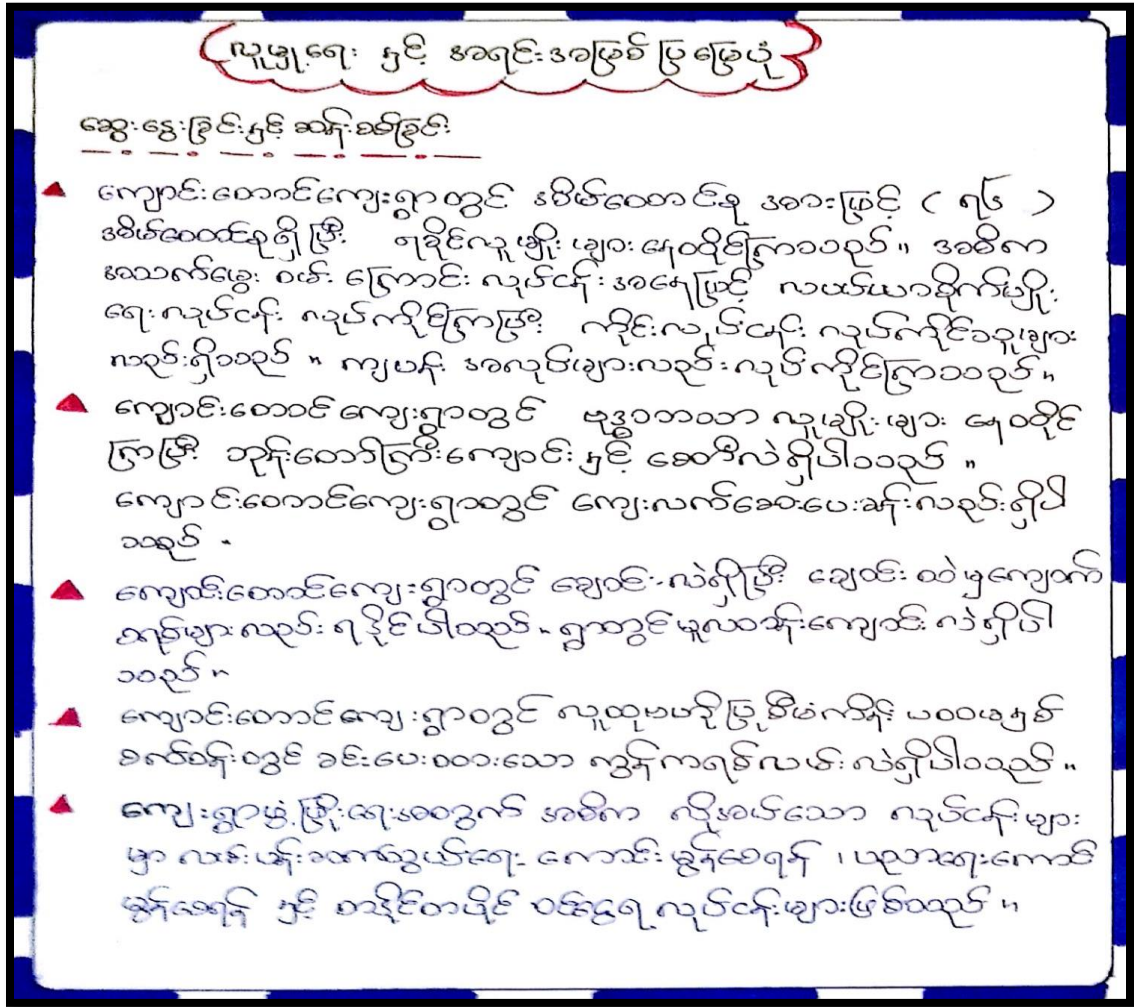 လူမှုရေး နှင့် အရင်းအမြစ် ပြ မြေပုံ
ဆွေးနွေးခြင်းနှင့် ဆန်းစစ်ခြင်း
ကျောင်းတောင်ကျေးရွာတွင် အိမ်ထောင်စု အားဖြင့် ( ၇၆ )
အိမ်ထောင်စုရှိပြီး ရခိုင်လူမျိုးများ နေထိုင်ကြသည်။ အဓိက
အသက်မွေး ဝမ်း ကြောင်း လုပ်ငန်း အနေဖြင့် လယ်ယာစိုက်ပျိုး
ရေးလုပ်ငန်း လုပ်ကိုင်ကြပြီး ကိုင်းလုပ်ငန်း လုပ်ကိုင်သူများ
လည်းရှိသည် ။ ကျပန်း အလုပ်များလည်းလုပ်ကိုင်ကြသည်။
ကျောင်းတောင် ကျေးရွာတွင် ဗုဒ္ဓဘာသာ လူမျိုးများ နေထိုင်
ကြပြီး ဘုန်းတော်ကြီးကျောင်း နှင့် စေတီလဲရှိပါသည် ။
ကျောင်းတောင်ကျေးရွာတွင် ကျေးလက်ဆေးပေးခန်းလည်းရှိပါ
သည် ။
ကျောင်းတောင်ကျေးရွာတွင် ချောင်းလဲရှိပြီး ချောင်းထဲမှကျောက်
စရစ်များလည်း ရနိုင်ပါသည် ။ ရွာတွင်မူလတန်းကျောင်းလဲရှိပါ
သည်။
ကျောင်းတောင်ကျေးရွာတွင် လူထုဗဟိုပြုစီမံကိန်း ပထမနှစ်
စက်ဝန်းတွင် ခင်းပေးထားသော ကွန်ကရစ်လမ်းလဲရှိပါသည် ။
ကျေးရွာဖွံ့ဖြိုးရေးအတွက် အဓိက လိုအပ်သော လုပ်ငန်းများ
မှာ လမ်းပန်းဆက်သွယ်ရေး ကောင်းမွန်စေရန် ၊ ပညာရေးကောင်း
မွန်စေရန် နှင့် တနိုင်တပိုင် ဝင်ငွေရ လုပ်ငန်းများဖြစ်သည် ။